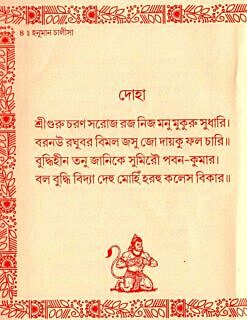 ৪ ঃ হনুমান চালীসা
দোহা
শ্রীগুরু চরণ সরোজ রজ নিজ মনু মুকুরু সুধারি।
বরনউ রঘুবর বিমল জসু জো দায়কু ফল চারি॥
বুদ্ধিহীন তনু জানিকে সুমিরৌ পবন-কুমার।
বল বুদ্ধি বিদ্যা দেহু মোহিঁ হরহু কলেস বিকার॥